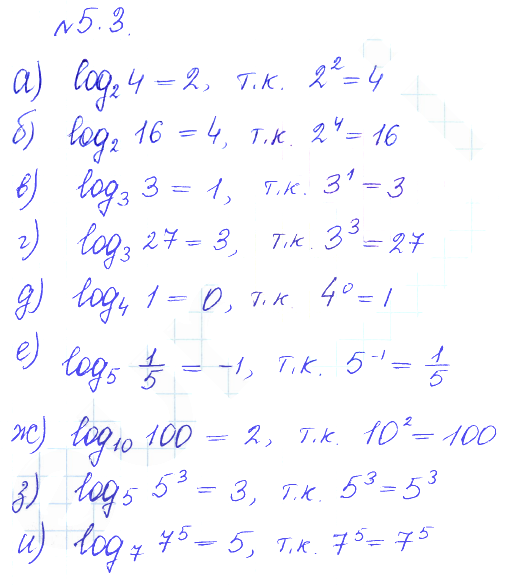 №5.3.
а) log₂ 4 = 2, т.к. 2² = 4
б) log₂ 16 = 4, т.к. 2⁴ = 16
в) log₃ 3 = 1, т.к. 3¹ = 3
г) log₃ 27 = 3, т.к. 3³ = 27
д) log₄ 1 = 0, т.к. 4⁰ = 1
е) log₅ 1/5 = -1, т.к. 5⁻¹ = 1/5
ж) log₁₀ 100 = 2, т.к. 10² = 100
з) log₅ 5³ = 3, т.к. 5³ = 5³
и) log₇ 7⁵ = 5, т.к. 7⁵ = 7⁵